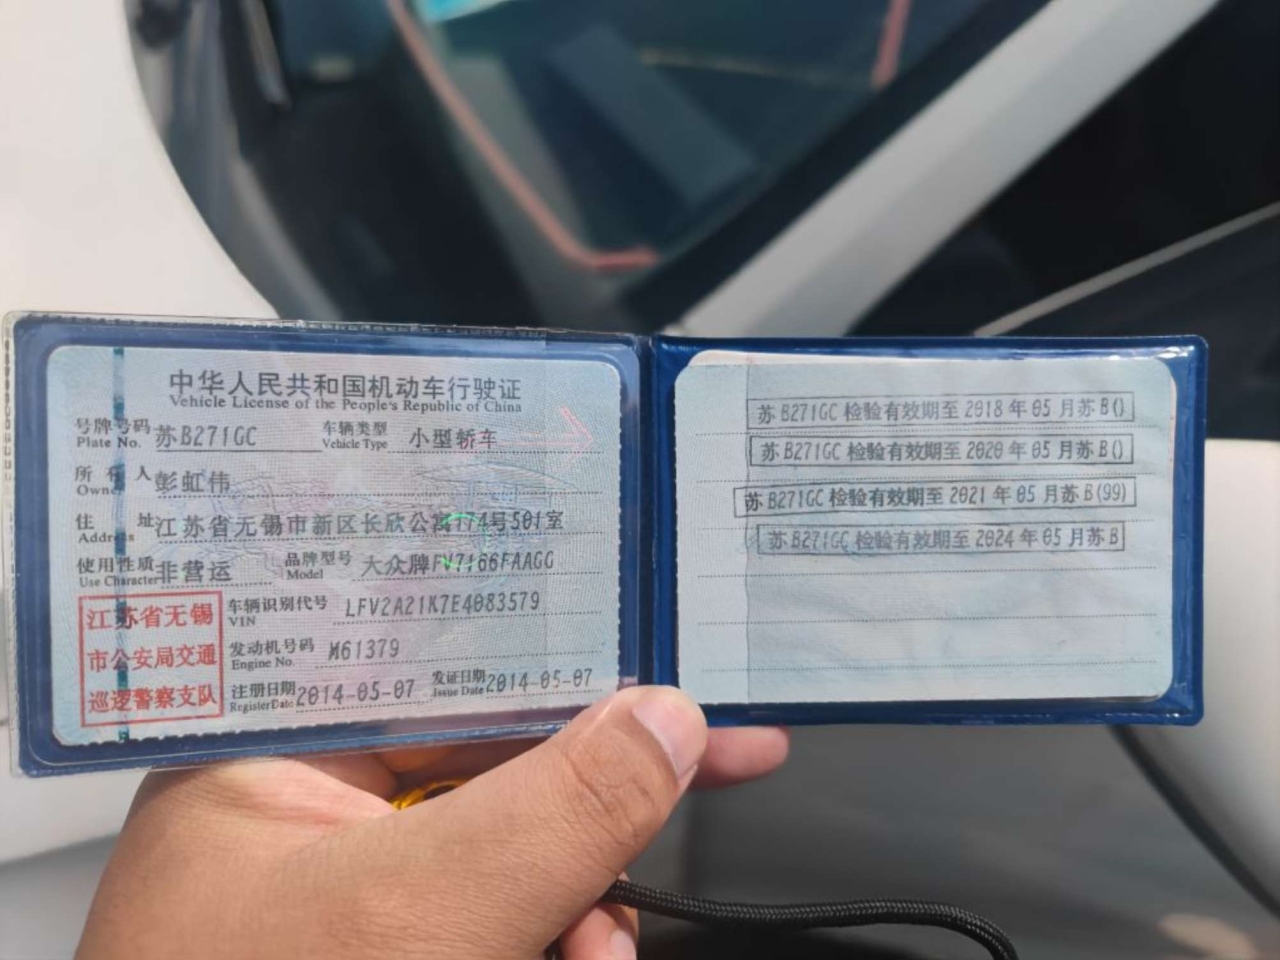 中华人民共和国机动车行驶证
Vehicle License of the People's Republic of China
号牌号码 苏B271GC 车辆类型 小型轿车
Plate No. Vehicle Type
所有人 彭虹伟
Owner
住址 江苏省无锡市新区长欣公寓174号501室
Address
使用性质 非营运 品牌型号 大众牌FV7166FAAGG
Use Character Model
江苏省无锡
市公安局交通
巡逻警察支队
车辆识别代号 LFV2A21K7E4083579
VIN
发动机号码 M61379
Engine No.
注册日期 2014-05-07 发证日期 2014-05-07
Register Date Issue Date
苏B271GC 检验有效期至 2018 年 05 月苏 B()
苏B271GC 检验有效期至 2020 年 05 月苏 B()
苏B271GC 检验有效期至 2021 年 05 月苏 B(99)
苏B271GC 检验有效期至 2024 年 05 月苏 B